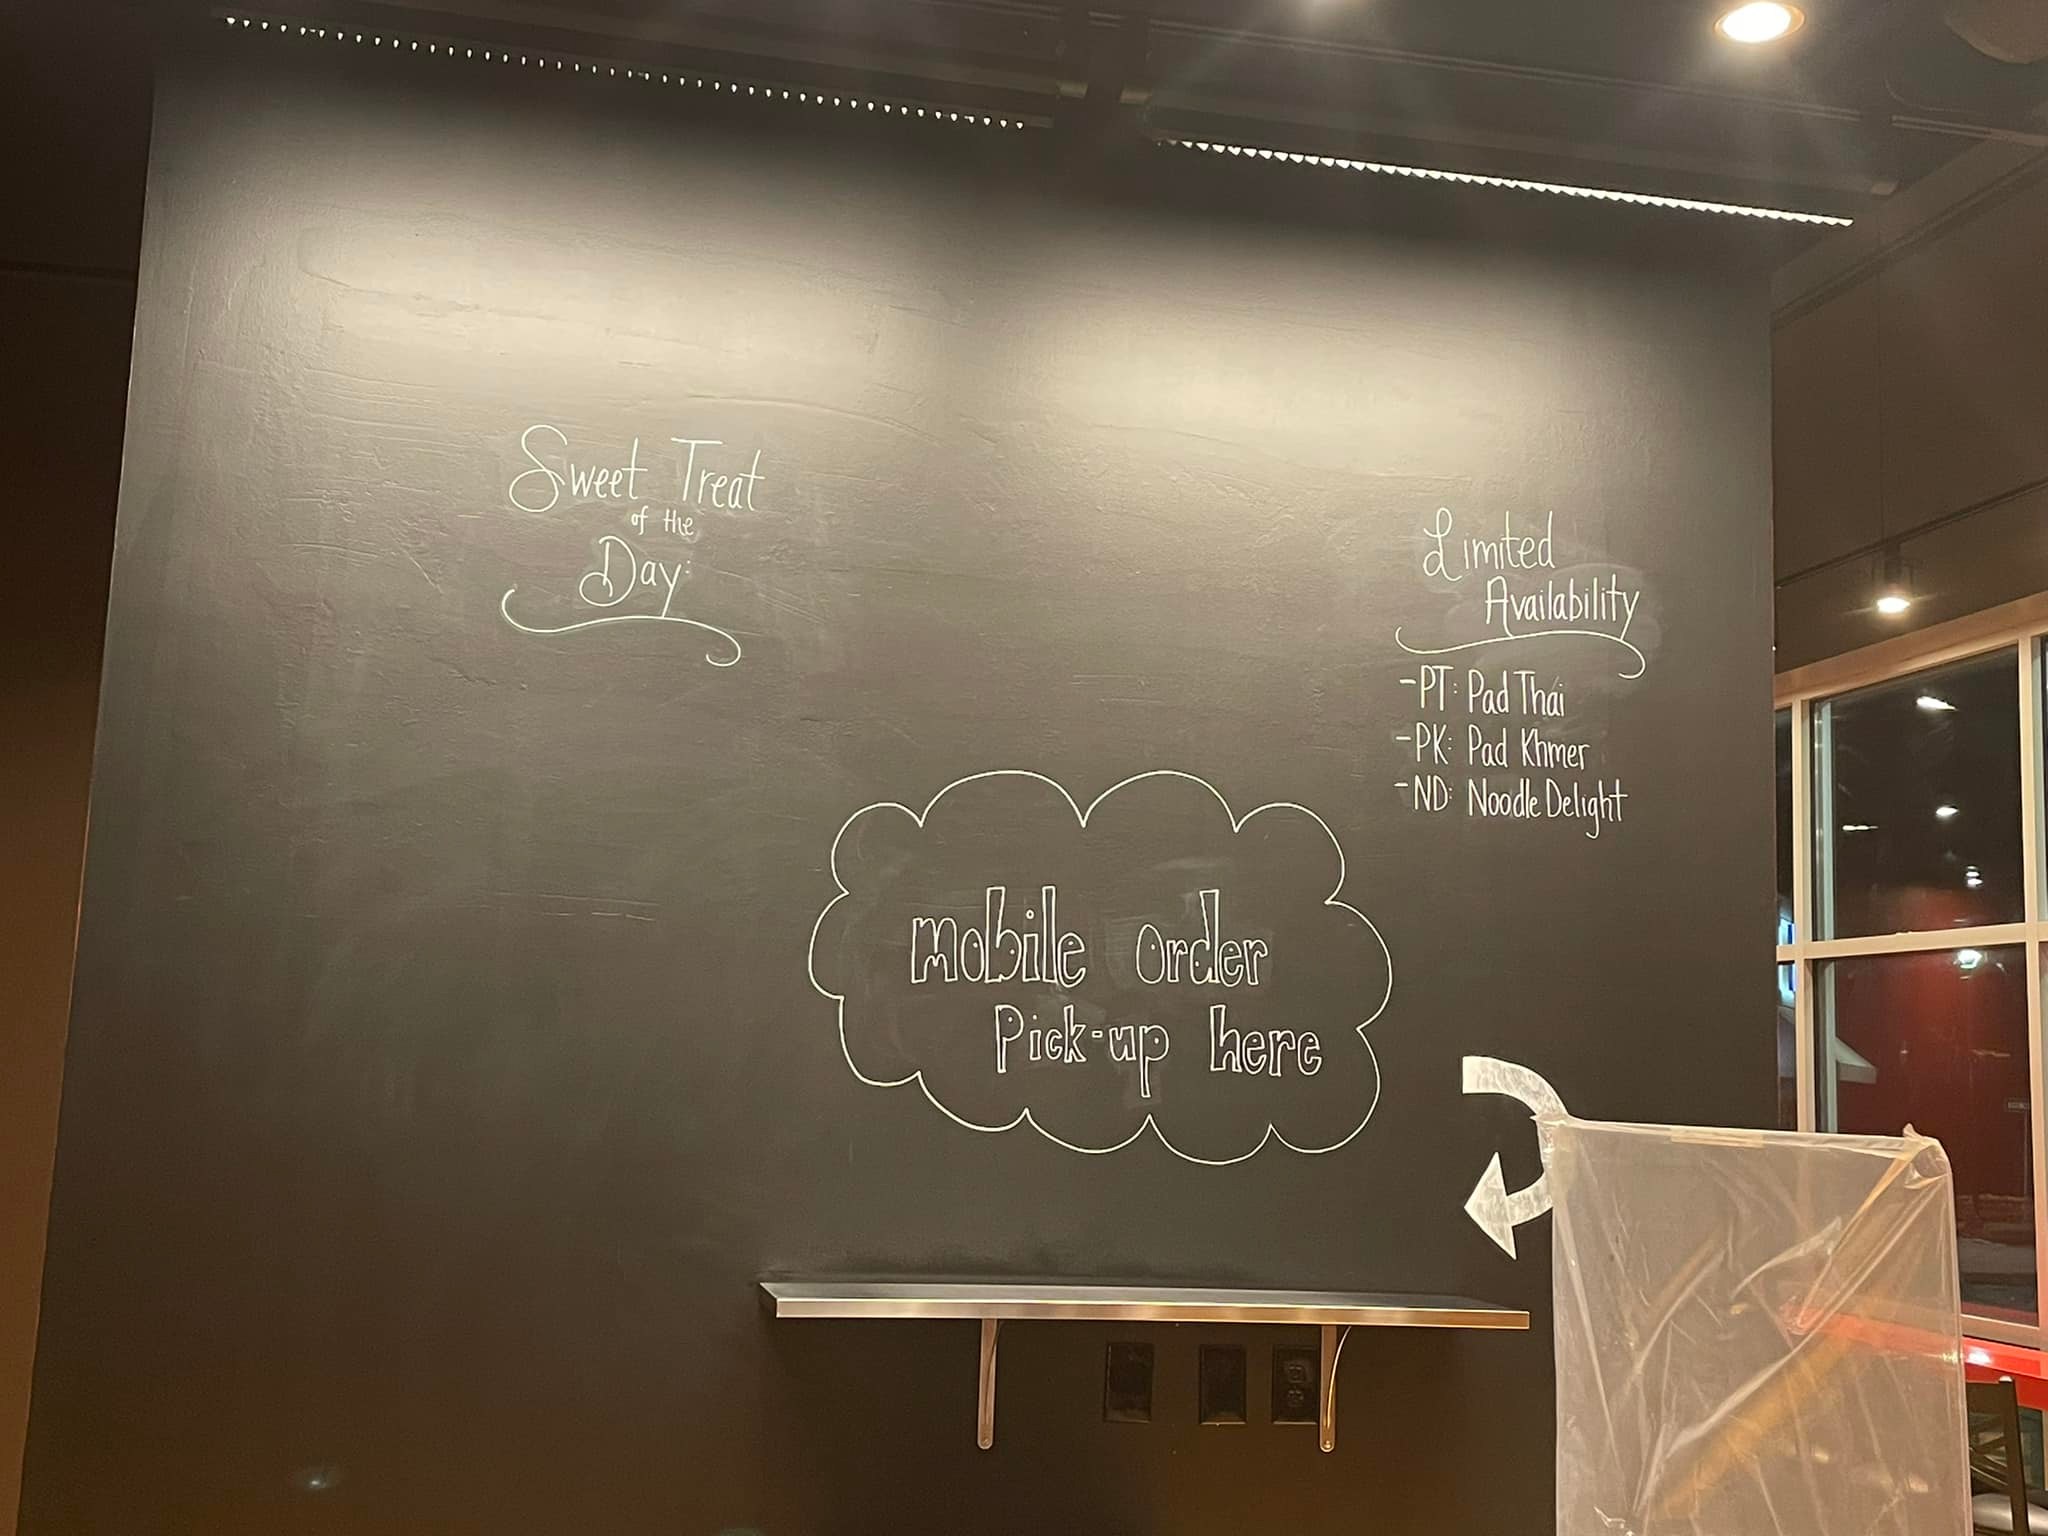 Sweet Treat
of the
Day:
Limited
Availability
-PT: Pad Thai
-PK: Pad Khmer
-ND: Noodle Delight
mobile order
Pick-up here